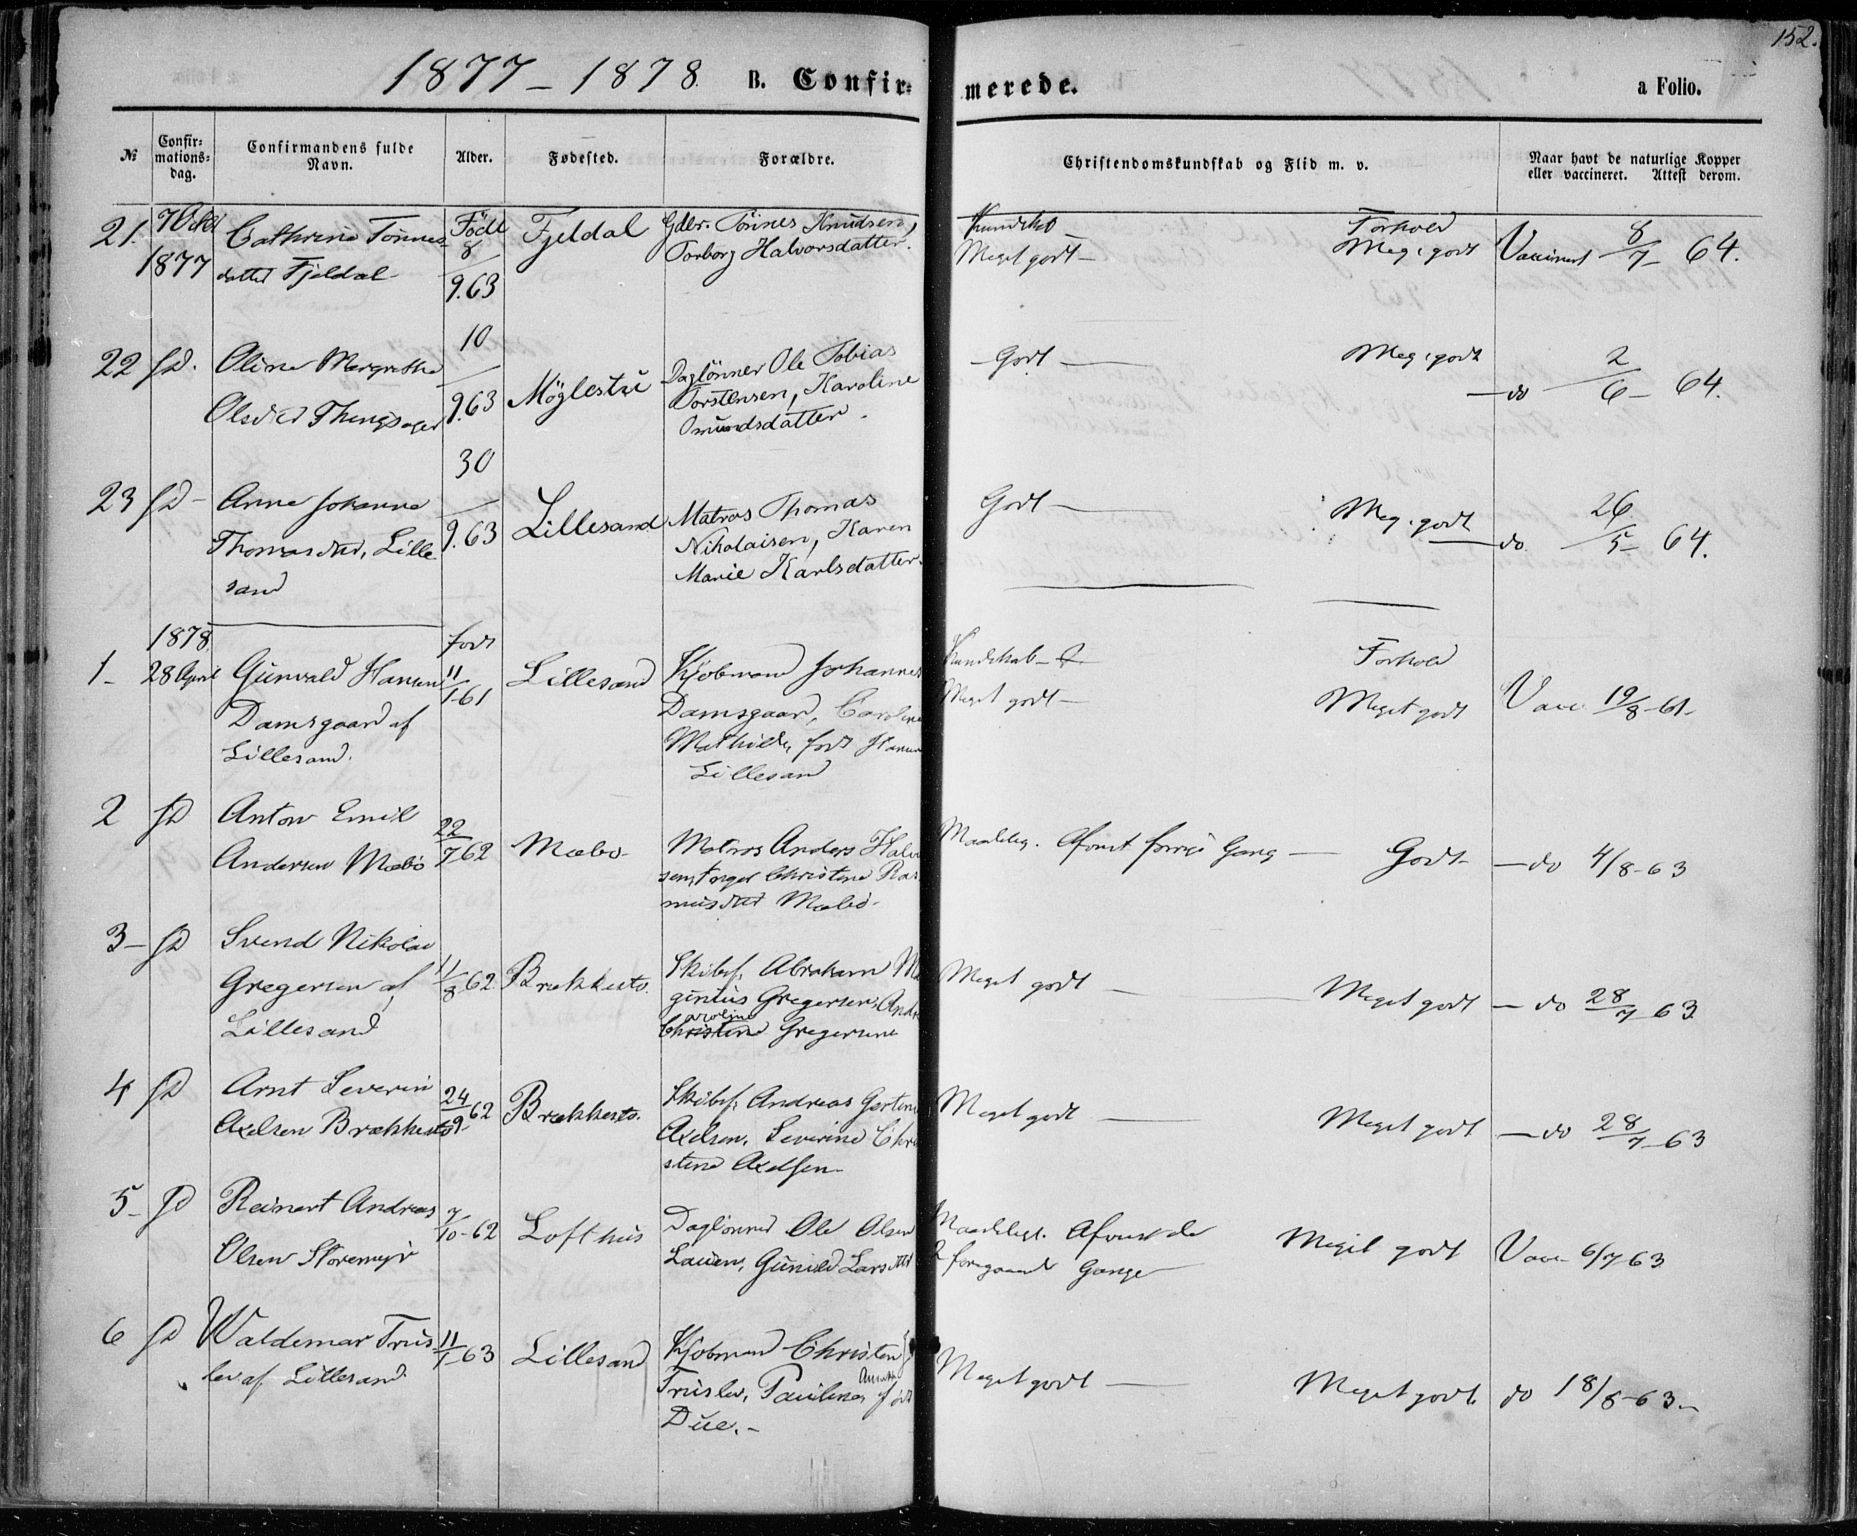 152.
1877 - 1878. B. Confir- merede. a Folio.
№ Confir-mations-dag. Confirmandens fulde Navn. Alder. Fødested. Forældre. Christendomskundskab og Flid m. v. Naar havt de naturlige Kopper eller vaccineret. Attest derom.
21. 7 Octbr 1877 Cathrine Tönnes-
datter Fjeldal
Födt 8/9.63
Fjeldal
Gdbr. Tönnes Knudsen,
Torborg Halvorsdatter.
Kundskb
Meget godt -
Forhold
Meg. godt
Vaccinert 8/7 - 64.
22 sd. Oline Margrethe
Olsdtr Thingsager
10/9.63
Möglestu
Daglönner Ole Tobias
Torstensen, Karoline
Omundsdatter.
Godt -
Meg. godt
- do 2/6 - 64.
23 sd - Anne Johanne
Thomasdtr, Lille
sand
30/9.63
Lillesand
Matros Thomas
Nikolaisen, Karen
Marie Karlsdatter.
Godt -
Meg. godt
- do 26/5 - 64.
1878
1 - 28 April Gunvald Hansen
Damsgaard af
Lillesand.
födt 11/1-61
Lillesand
Kjöbmand Johannes
Damsgaard, Caroline
Mathilde, födt Hansen
Lillesand
Kundskab -
Meget godt -
Forhold
Meget godt
Vacc. 19/8-61-
2 sd Anton Emil
Andersen Mæbö
22/7 62
Mæbö
Matros Anders Halv
sen, Inger Christine Ras
musdtr Mæbö.
Maadelig. Afvist forrige Gang -
Godt
- do 4/8-63
3 - sd Svend Nikolai
Gregersen af
Lillesand
11/8 62
Brækkestö.
Skibsf. Abraham M
ginius Gregersen, Andr
Christine aroline Gregersen
Meget godt -
Meget godt
- do 28/7 63
4 sd Arnt Severin
Axelsen Brækkestö
24/9 62
Brækkestö.
Skibsf. Andreas Gerten
Axelsen, Severine Chri
stine Axelsen
Meget godt -
Meget godt
- do 28/7-63
5 - sd Reinert Andreas
Olsen Storemyr
7/10-62
Lofthus
Daglönner Ole Olsen
Lauen, Gunild Larsdtr
Maadeligt. Afvist de
2 foregaaende Gange
Meget godt
Vacc 6/7 63
6 sd Waldemar Trus
lev af Lillesand
11/1-63
Lillesand
Kjöbmand Christen
Truslev, Pauline, født
Due. -
Meget godt -
Meget godt
do 18/8-63.-